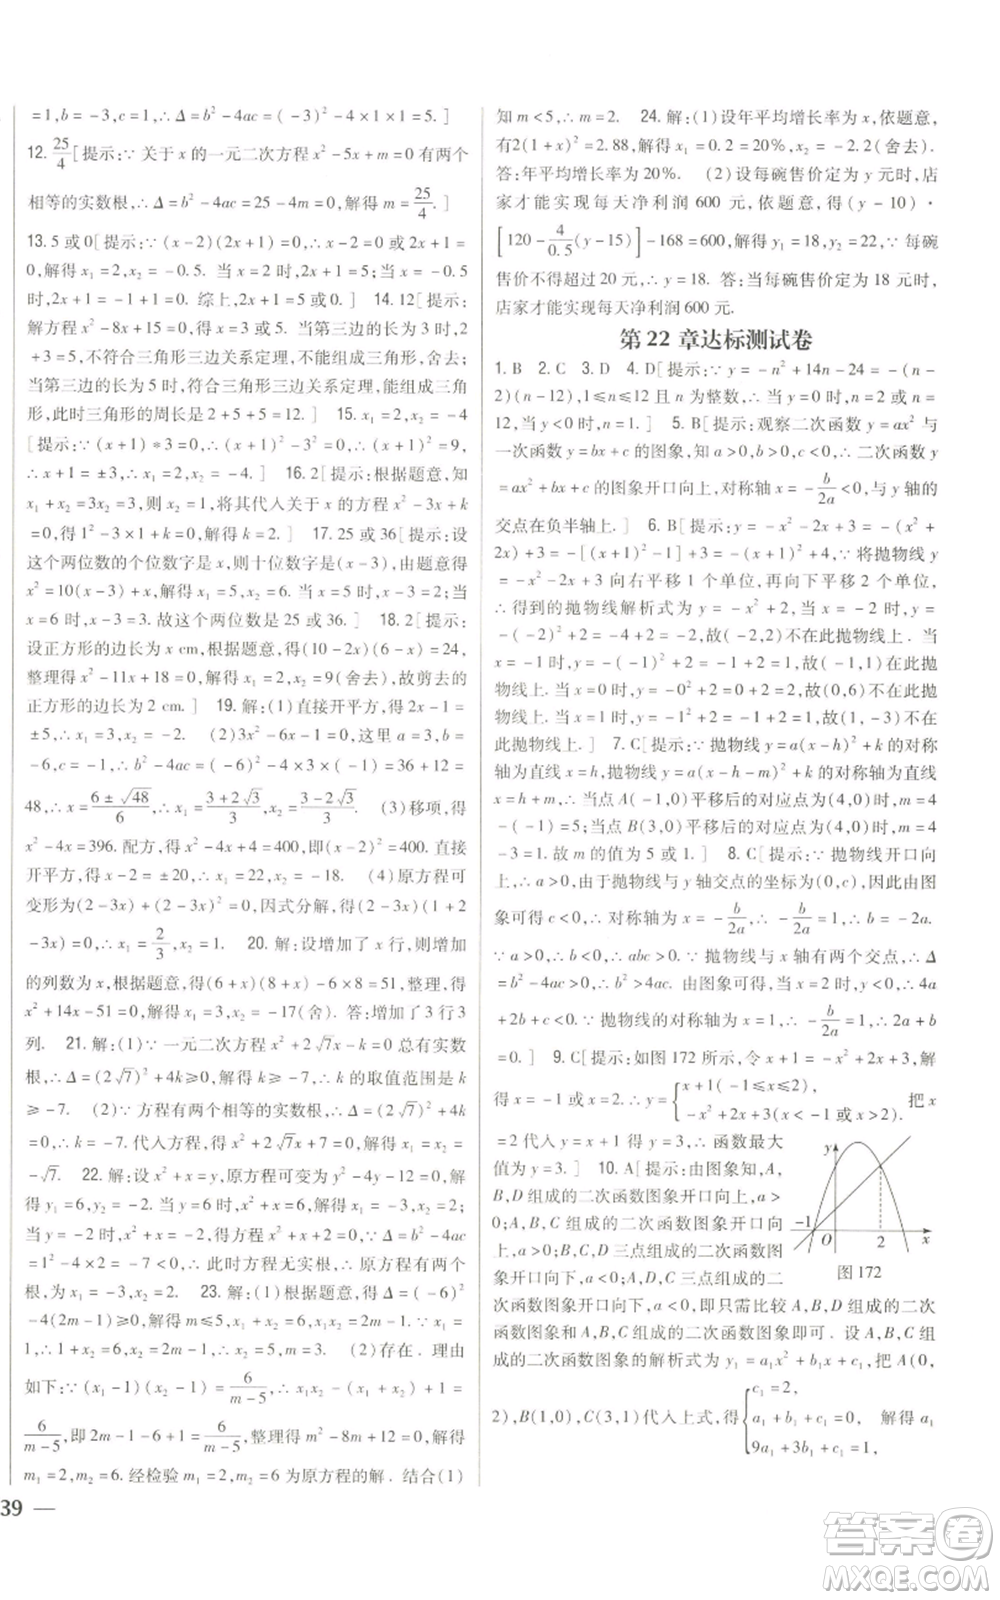 =1,b=-3,c=1,∴Δ=b²-4ac=(-3)²-4×1×1=5.]
12. 25/4[提示:∵关于x的一元二次方程x²-5x+m=0有两个
相等的实数根,∴Δ=b²-4ac=25-4m=0,解得m=25/4.]
13. 5或0[提示:∵(x-2)(2x+1)=0,∴x-2=0或2x+1=
0,解得x₁=2,x₂=-0.5. 当x=2时,2x+1=5;当x=-0.5
时,2x+1=-1+1=0. 综上,2x+1=5或0.] 14. 12[提示:
解方程x²-8x+15=0,得x=3或x=5. 当第三边的长为3
时,2+3=5,不符合三角形三边关系定理,不能组成三角形;
当第三边的长为5时,符合三角形三边关系定理,能组成三角
形,此时三角形的周长是2+5+5=12.] 15. x₁=2,x₂=-4
[提示:∵(x+1)*3=0,∴(x+1)²-3²=0,∴(x+1)²=9,
∴x+1=±3,∴x₁=2,x₂=-4.] 16. 2[提示:根据题意,知
x₁+x₂=3x₂,则x₂=1,将其代入关于x的方程x²-3x+k=
0,得1²-3×1+k=0. 解得k=2.] 17. 25或36[提示:设
这个两位数的个位数字是x,则十位数字是(x-3),由题意可得
x²=10(x-3)+x,解得x₁=5,x₂=6. 当x=5时,x-3=2;当x
=6时,x-3=3. 故这个两位数是25或36.] 18. 2[提示:
设正方形的边长为x cm,根据题意,得(10-2x)(6-x)=24,
整理得x²-11x+18=0,解得x₁=2,x₂=9(舍去),故剪去的
正方形的边长为2 cm.] 19. 解:(1)直接开平方,得2x-1=
±5,∴x₁=3,x₂=-2. (2)3x²-6x-2=0,这里a=3,b=
-6,c=-2,∴Δ=b²-4ac=(-6)²-4×3×(-2)=36+12
48,∴x=(6±√48)/6,∴x₁=(3+2√3)/3,x₂=(3-2√3)/3. (3)移项,得
x²-4x=396. 配方,得x²-4x+4=400,即(x-2)²=400. 直接
开平方,得x-2=±20,∴x₁=22,x₂=-18. (4)原方程可
变形为(2-3x)+(2-3x)²=0,因式分解,得(2-3x)(1+2
-3x)=0,∴x₁=2/3,x₂=1. 20. 解:设增加了x行,则增加
的列数为x,根据题意,得(6+x)(8+x)-6×8=51,整理得
x²+14x-51=0,解得x₁=3,x₂=-17(舍). 答:增加了3行3
列. 21. 解:(1)∵一元二次方程x²+2√7x-k=0总有实数
根,∴Δ=(2√7)²+4k≥0,∴28+4k≥0,∴k的取值范围是k
≥-7. (2)∵方程有两个相等的实数根,∴Δ=(2√7)²+4k
=0,∴k=-7. 代入方程,得x²+2√7x+7=0,解得x₁=x₂=
-√7. 22. 解:设x²+x=y,原方程可变形为y²-4y-12=0,解
得y₁=6,y₂=-2. 当y=6时,x²+x=6,解得x₁=-3,x₂=2;
当y=-2时,x²+x=-2,得方程x²+x+2=0,∵Δ=b²-4ac
=1²-4×2=-7<0,∴此时方程无实根. 所以原方程有两个
根:x₁=-3,x₂=2. 23. 解:(1)根据题意,得Δ=(-6)²
-4(2m-1)≥0,解得m≤5. ∵x₁+x₂=6,x₁x₂=2m-1,x₁=
1,∴1+x₂=6,x₂=2m-1,∴x₂=5,m=3. (2)存在. 理由
如下:∵(x₁-1)(x₂-1)=6/(m-5),∴x₁x₂-(x₁+x₂)+1=
6/(m-5),即2m-1-6+1=6/(m-5),整理得m²-8m+12=0,解得
m₁=2,m₂=6. 经检验m₁=2,m₂=6为原方程的解. 结合(1)
39 —
知m<5,∴m=2. 24. 解:(1)设年平均增长率为x,依题意,
有2(1+x)²=2.88,解得x₁=0.2=20%,x₂=-2.2(舍去).
答:年平均增长率为20%. (2)设每碗售价定为y元时,店
家才能实现每天净利润600元,依题意,得(y-10)·
[120-4/0.5(y-15)]-168=600,解得y₁=18,y₂=22,∵每碗
售价不得超过20元,∴y=18. 答:当每碗售价定为18元时,
店家才能实现每天净利润600元.
第22章达标测试卷
1. B 2. C 3. D 4. D[提示:∵y=-n²+14n-24=-(n-
2)(n-12),1≤n≤12且n为整数,∴当y=0时,n=2或n=
12,当y<0时,n=1.] 5. B[提示:观察二次函数y=ax²与
一次函数y=bx+c的图象,知a>0,b>0,c<0,∴二次函数y
=ax²+bx+c的图象开口向上,对称轴x=-b/2a<0,与y轴的
交点在负半轴上.] 6. B[提示:y=-x²-2x+2=-(x²+
2x)+2=-[(x+1)²-1]+2=-(x+1)²+3,∵将抛物线y=
-x²-2x+2向右平移1个单位,再向下平移2个单位,
∴得到的抛物线解析式为y=-x²+1
x=-1时,y=-(-1)²+1=0,故(-1,1)不在此抛
物线上. 当x=0时,y=-0²+1=1,故(0,6)不在此抛物
线上. 当x=1时,y=-1²+1=0,故(1,-3)不在
此抛物线上.] 7. C[提示:∵抛物线y=a(x-h)²+k的对称
轴为直线x=h,抛物线y=a(x-h-m)²+k的对称轴为直线
x=h+m,∴当点A(-1,0)平移后的对应点为(4,0)时,m=4
-(-1)=5;当点B(3,0)平移后的对应点为(4,0)时,m=4
-3=1. 故m的值为5或1.] 8. C[提示:∵抛物线开口向
上,∴a>0,由于抛物线与y轴交点的坐标为(0,c),因此由图
象可得c<0,∴对称轴为x=-b/2a,∴-b/2a=1,∴b=-2a.
∵a>0,∴b<0,∴abc>0. ∵抛物线与x轴有两个交点,∴Δ
=b²-4ac>0,∴b²>4ac. 由图象可知,当x=2时,y<0,∴4a
+2b+c<0. ∵抛物线的对称轴为x=1,∴-b/2a=1,∴2a+b
=0.] 9. C[提示:如图172所示,令x+1=-x²+2x+3,解
得x=-1或x=2,∴y={x+1(-1≤x≤2), -x²+2x+3(x<-1或x>2). 把x
=2代入y=x+1,得y=3,∴函数最大
值为y=3.] 10. A[提示:由图象知,A,
B,D组成的二次函数图象开口向上,a>
0;A,B,C组成的二次函数图象开口向
上,a>0;B,C,D三点组成的二次函数图
象开口向下,a<0;A,C,D三点组成的二
次函数图象开口向下,a<0,即只需比较A,B,C组成的二次
函数图象和A,B,D组成的二次函数即可. 设A,B,C组
成的二次函数图象的解析式为y₁=a₁x²+b₁x+c₁,把A(0,
2),B(1,0),C(3,1)代入上式,得{c₁=2, a₁+b₁+c₁=0, 9a₁+3b₁+c₁=1, 解得a₁
y
-1 O 2 x
图172
答案圈
MXQE.COM